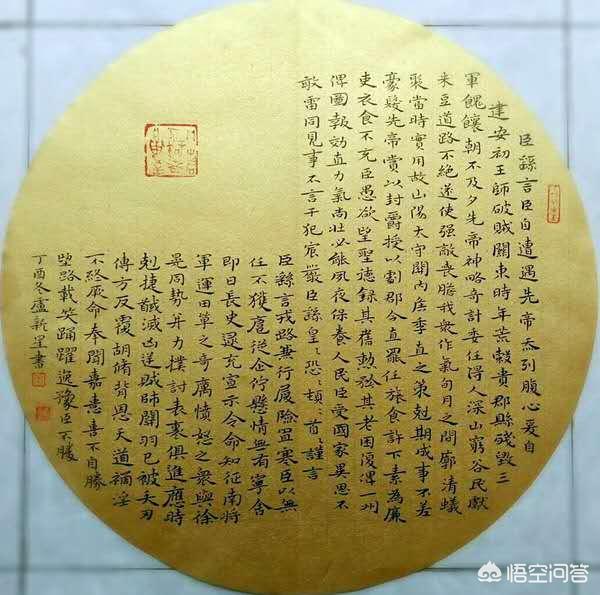 臣繇言臣自遭遇先帝忝列腹心爰自
建安初王師破賊關東時年荒穀貴郡縣殘毀三
軍餽饟朝不及夕先帝神略奇計委任得人深山窮谷民獻
米豆道路不絕遂使强敵喪膽我衆作氣旬月之間廓清蟻
聚當時實用故山陽太守關內侯季直之策剋期成事不差
豪髮先帝賞以封爵授以劇郡今直罷任旅食許下素為廉
吏衣食不充臣愚欲望聖德錄其舊勳矜其老困復俾一州
俾圖報效直力氣尚壯必能夙夜保養人民臣受國家異恩不
敢雷同見事不言干犯宸嚴臣繇皇〻恐〻頓〻首〻謹言
臣繇言戎路兼行履險冒寒臣以無
任不獲扈從企佇懸情無有寧舍
即日長史逮充宣示令命知征南將
軍運田單之奇厲憤怒之衆與徐
晃同勢并力撲討表裏俱進應時
剋捷馘滅凶逆賊帥關羽已被矢刃
傅方反覆胡脩背恩天道禍淫
不終厥命奉聞嘉憙喜不自勝
望路載笑踊躍逸豫臣不勝
丁酉冬盧新星書
悟空问答